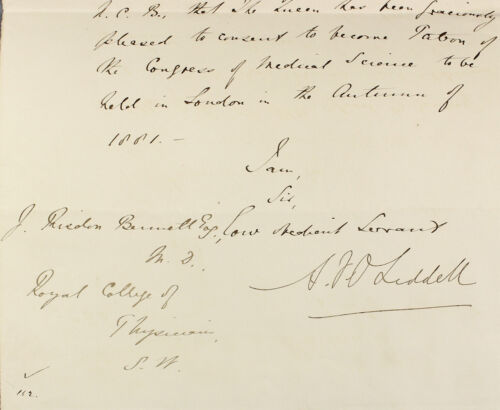 K. C. B., that The Queen has been graciously
pleased to consent to become Patron of
the Congress of Medical Science to be
held in London in the Autumn of
1881. —
I am,
Sir,
J. Risdon Bennett Esq., Your obedient Servant
M. D.
A. F. O. Liddell
Royal College of
Physicians,
S. W.